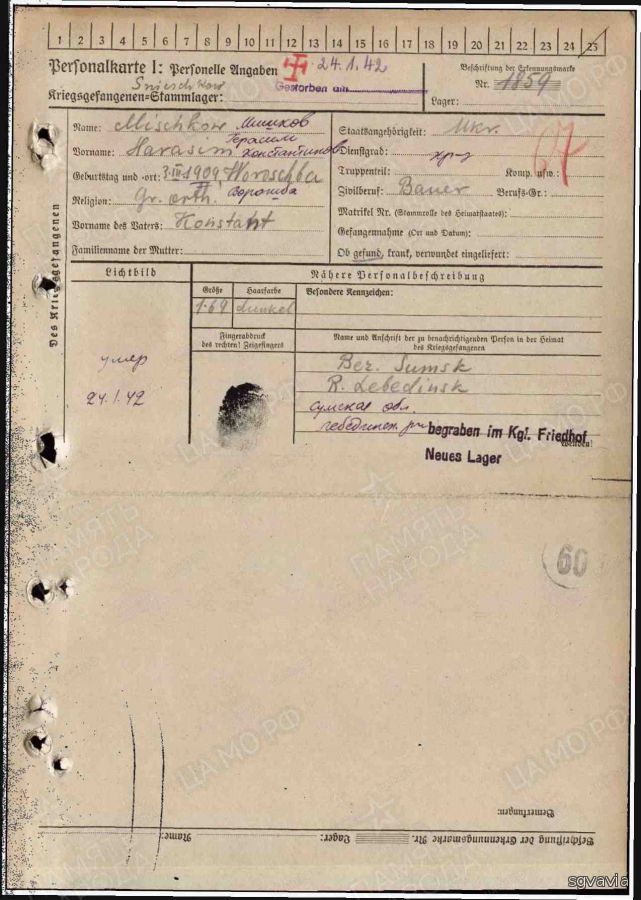 1 2 3 4 5 6 7 8 9 10 11 12 13 14 15 16 17 18 19 20 21 22 23 24 25
Personalkarte I: Personelle Angaben
24.1.42
Gestorben am
Beschriftung der Erkennungsmarke
Nr. 1859
Kriegsgefangenen-Stammlager:
Lager:
Des Kriegsgefangenen
Name: Mischkow Мишков
Vorname: Harasim Герасим Константинов
Geburtstag und -ort: 3.III.1909 Woroschba
Ворожба
Religion: Gr. orth.
Vorname des Vaters: Konstant
Familienname der Mutter:
Staatsangehörigkeit: Ukr.
Dienstgrad: кр-ц
67
Truppenteil: Komp. usw.:
Zivilberuf: Bauer Berufs-Gr.:
Matrikel Nr. (Stammrolle des Heimatstaates):
Gefangennahme (Ort und Datum):
Ob gesund, krank, verwundet eingeliefert:
Lichtbild
Nähere Personalbeschreibung
Größe Haarfarbe Besondere Kennzeichen:
1.69 dunkel
Fingerabdruck
des rechten! Zeigefingers
Name und Anschrift der zu benachrichtigenden Person in der Heimat
des Kriegsgefangenen
умер
24.1.42
Bez. Sumsk
R. Lebedinsk
Сумская обл.
Лебединск. р-н
begraben im Kgf. Friedhof
Neues Lager
Wenden!
60
Bemerkungen:
Beschriftung der Erkennungsmarke Nr. Lager: Name:
ЦА МО РФ
ПАМЯТЬ НАРОДА
sgvavia